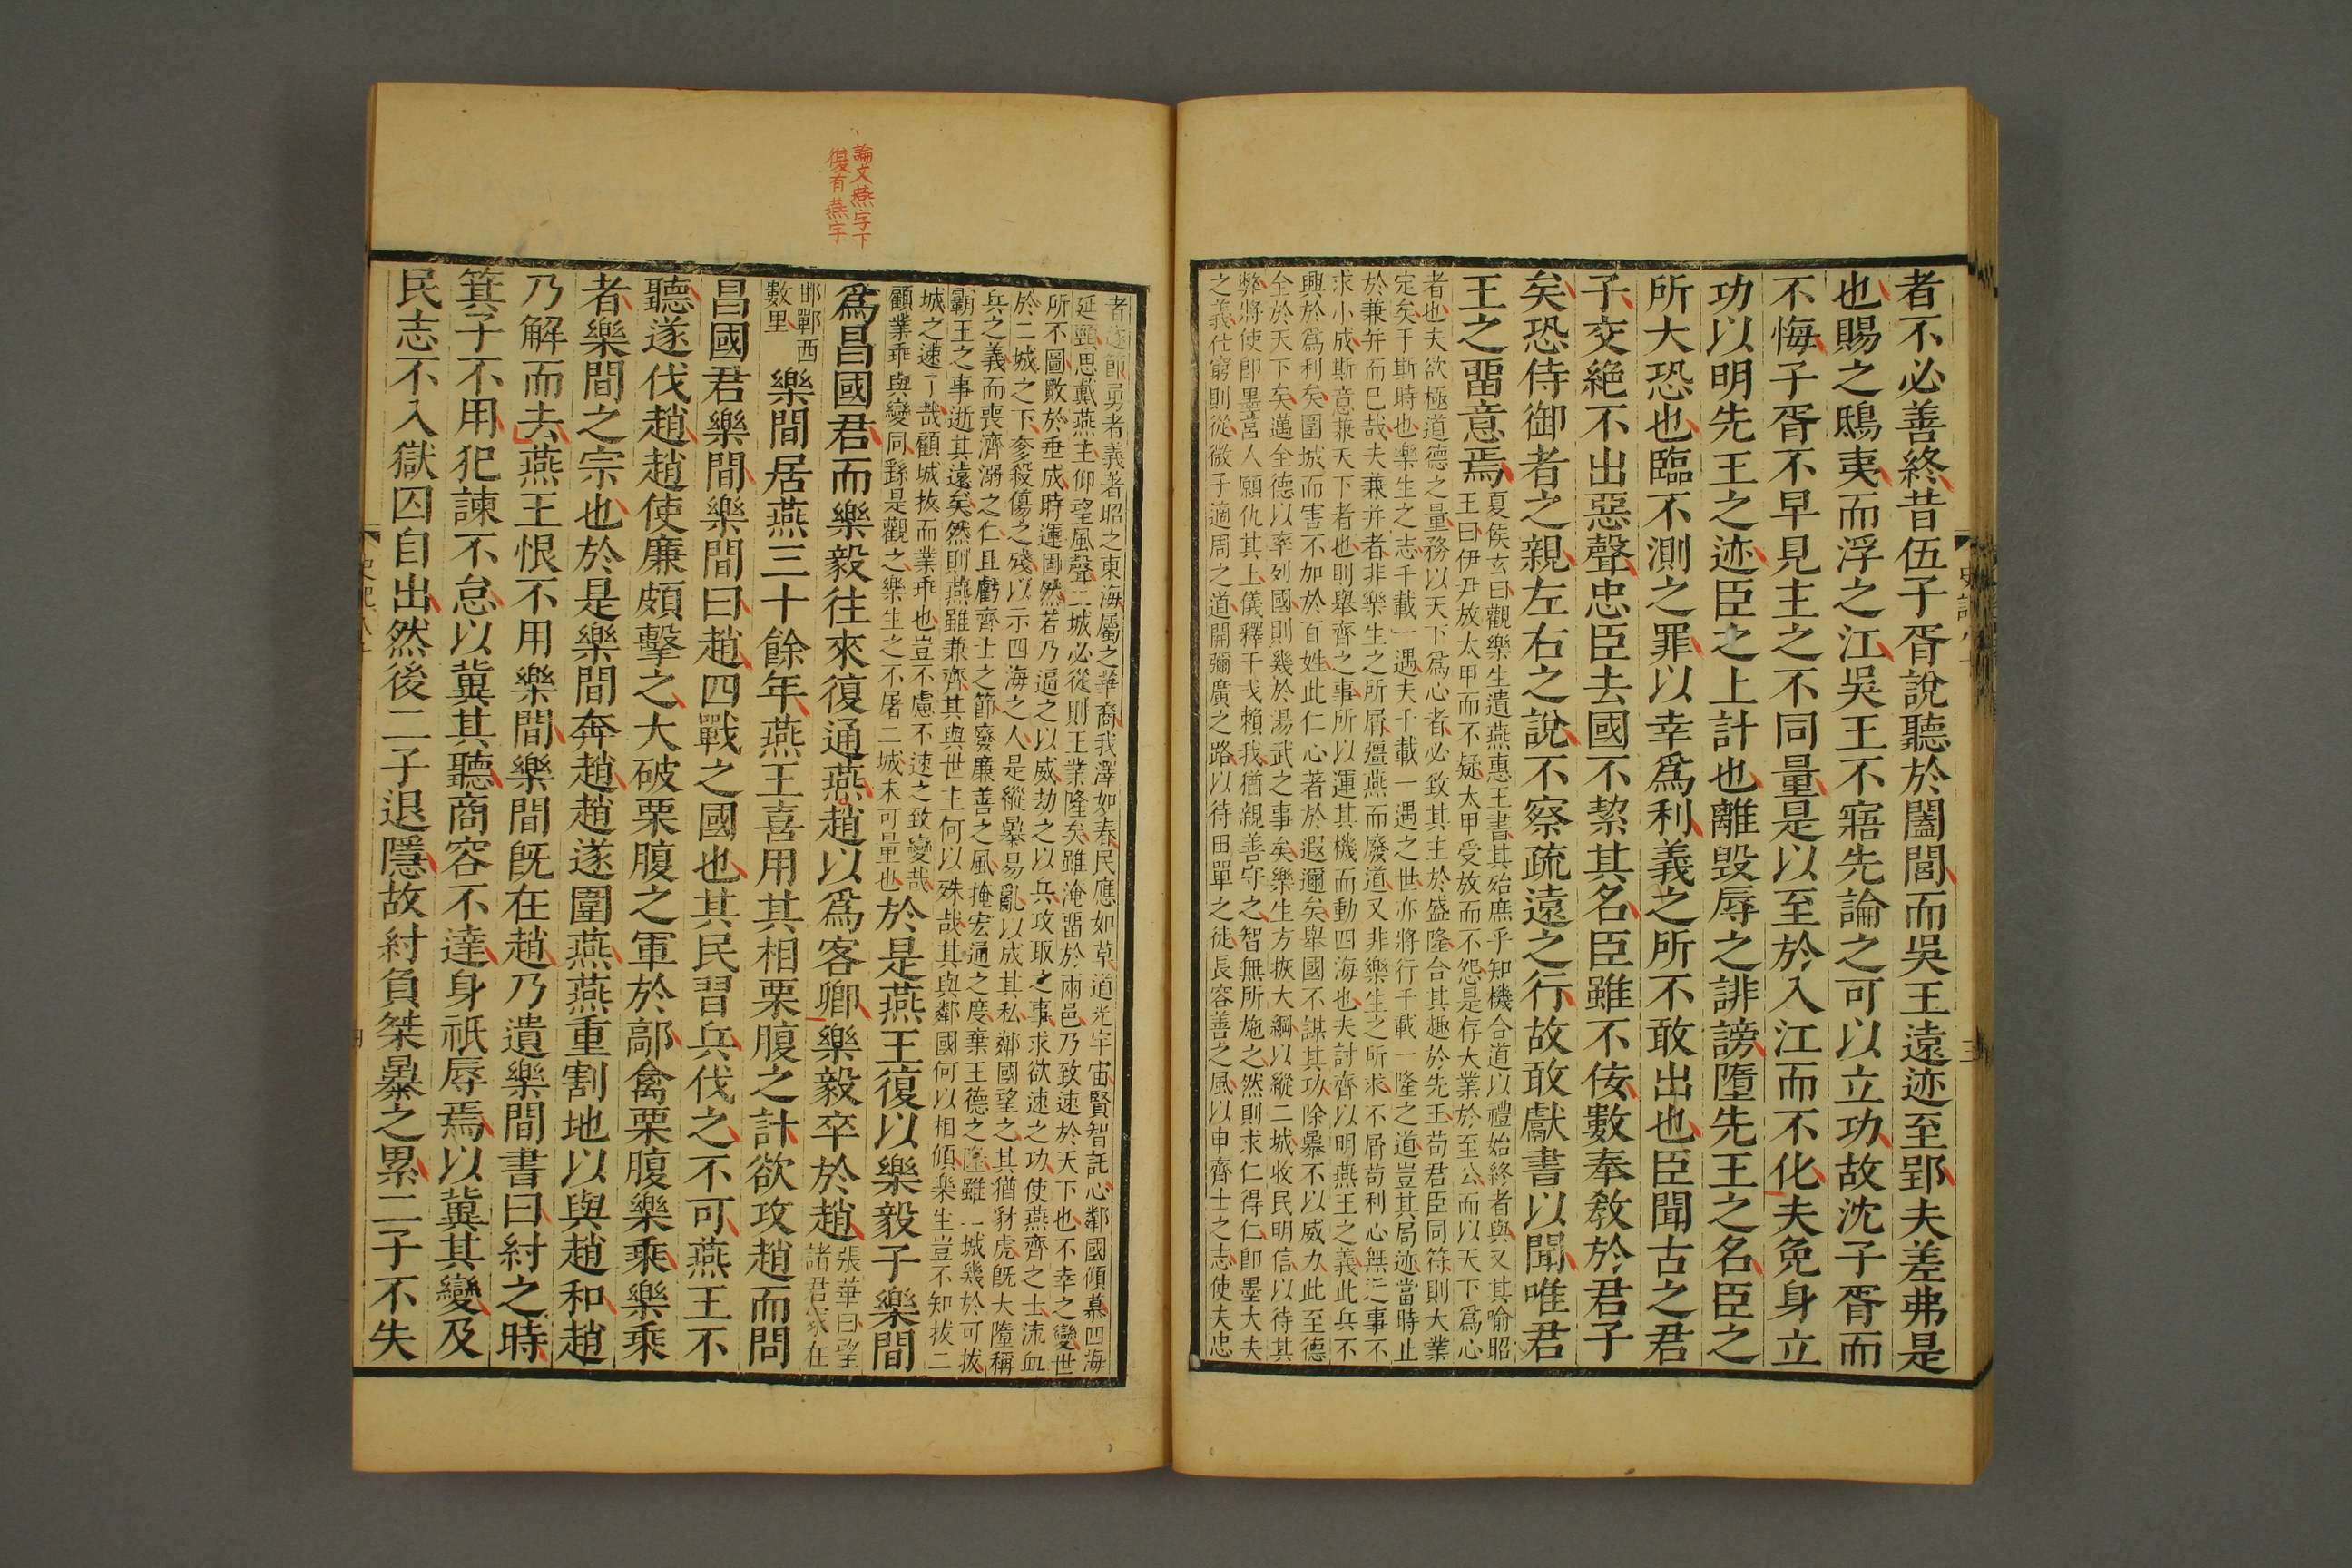 者不必善終昔伍子胥說聽於闔閭而吳王遠迹至郢夫差弗是
也賜之鴟夷而浮之江吳王不寤先論之可以立功故沈子胥而
不悔子胥不早見主之不同量是以至於入江而不化夫免身立
功以明先王之迹臣之上計也離毀辱之誹謗墮先王之名臣之
所大恐也臨不測之罪以幸爲利義之所不敢出也臣聞古之君
子交絶不出惡聲忠臣去國不絜其名臣雖不佞數奉敎於君子
矣恐侍御者之親左右之說不察疏遠之行故敢獻書以聞唯君
王之畱意焉
夏侯玄曰觀樂生遺燕惠王書其殆庶乎知機合道以禮始終者與又其喻昭
王曰伊尹放太甲而不疑太甲受放而不怨是存大業於至公而以天下爲心
者也夫欲極道德之量務以天下爲心者必致其主於盛隆合其趣於先王苟君臣同符則大業
定矣于斯時也樂生之志千載一遇夫千載一遇之世亦將行千載一隆之道豈其局迹當時止
於兼并而已哉夫兼并者非樂生之所屑彊燕而廢道又非樂生之所求不屑苟利心無近事不
求小成斯意兼天下者也則舉齊之事所以運其機而動四海也夫討齊以明燕王之義此兵不
興於爲利矣圍城而害不加於百姓此仁心著於遐邇矣舉國不謀其功除暴不以威力此至德
全於天下矣邁全德以率列國則幾於湯武之事矣樂生方恢大綱以縱二城收民明信以待其
弊將使卽墨莒人願仇其上儀釋干戈賴我猶親善守之智無所施之然則求仁得仁卽墨大夫
之義仕窮則從微子適周之道開彌廣之路以待田單之徒長容善之風以申齊士之志使夫忠
者遂節勇者義著昭之東海屬之華裔我澤如春民應如草道光宇宙賢智託心鄰國傾慕四海
延頸思戴燕主仰望風聲二城必從則王業隆矣雖淹畱於兩邑乃致速於天下也不幸之變世
所不圖敗於垂成時運固然若乃逼之以威劫之以兵攻取之事求欲速之功使燕齊之士流血
於二城之下奓殺傷之殘以示四海之人是縱暴易亂以成其私鄰國望之其猶豺虎旣大墮稱
兵之義而喪濟溺之仁且虧齊士之節廢廉善之風掩宏通之度棄王德之隆雖二城幾於可拔
霸王之事逝其遠矣然則燕雖兼齊其與世主何以殊哉其與鄰國何以相傾樂生豈不知拔二
城之速了哉顧城拔而業乖也豈不慮不速之致變哉
顧業乖與變同繇是觀之樂生之不屠二城未可量也
於是燕王復以樂毅子樂間
爲昌國君而樂毅往來復通燕趙以爲客卿樂毅卒於趙
張華曰望
諸君冢在
邯鄲西
數里
樂間居燕三十餘年燕王喜用其相栗腹之計欲攻趙而問
昌國君樂間樂間曰趙四戰之國也其民習兵伐之不可燕王不
聽遂伐趙趙使廉頗擊之大破栗腹之軍於鄗禽栗腹樂乘樂乘
者樂間之宗也於是樂間奔趙趙遂圍燕燕重割地以與趙和趙
乃解而去燕王恨不用樂間樂間旣在趙乃遺樂間書曰紂之時
箕子不用犯諫不怠以冀其聽商容不達身祇辱焉以冀其變及
民志不入獄囚自出然後二子退隱故紂負桀暴之累二子不失
論文燕字下
復有燕字